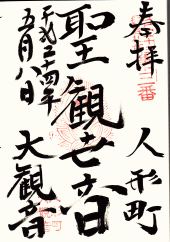 奉拝
人形町
聖観世音
平成二十四年
五月八日
大観音